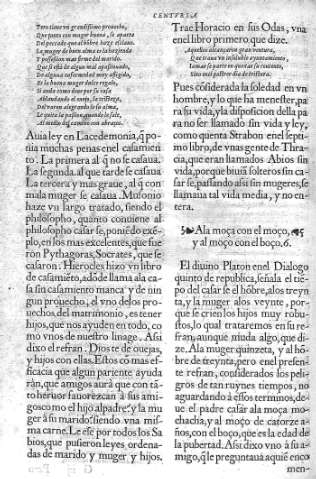 CENTVRIA
Pero tiene vn grandissimo prouecho,
Que junto con mayor bueno, se aparta
Del peccado que al hõbre haze
La muger de buen alma es la hazienda
Y possession mas firme del marido.
Que si està de algun mal
De alguna enfermedad muy afligido,
Es la buena muger dulce regalo,
Si anda como deue por su casa
Ablandando el enojo, la tristeza,
Del varon alegrando le se
Le quita la passion, quando le
Al medio del camino con
Auia ley en Lacedemonia, q̃ ponia
muchas penas en el casamiento.
La primera al q̃ no se casaua.
La segunda al que tarde se casaua
La tercera y mas graue, al q̃ con
mala muger se casaua. Musonio
haze vn largo tratado, siendo el
philosopho, quanto conuiene al
philosopho casarse, poniẽdo exẽplo,
en los mas excelentes, que fueron
Pythagoras, Socrates, que se
casaron. Hierocles hizo vn libro
de casamiẽto, adõde llama a la casa
sin casamiento manca y de ningun
prouecho, el vno de los prouechos
del matrimonio, es tener
hijos, que nos ayuden en todo, como
vnos de nuestro linage. Assi
dixo el refran. Dios te dè ouejas,
y hijos con ellas. Estos cõ mas efficacia
que algun pariente ayudaràn,
que amigos aurà que con tãto
heruor fauorezcan à sus amigos
como el hijo al padre? y la muger
à su marido? siendo vna misma
carne. Le ese por todos los Sabios,
que pusieron leyes, ordenadas
de marido y muger y hijos.
Trae Horacio en sus Odas, vna
en el libro primero que dize.
Aquellos alcançaron gran ventura,
Que traua vn insoluble ayuntamiento,
Lamas se parte en quexas su contento,
Sino en el postrer dia de tristura.
Pues cõsiderada la soledad en vn
hombre, y lo que ha menester, para
su vida, y la disposicion della para
no ser llamado sin vida y ley,
como quenta Strabon en el septimo
libro, de vnas gente de Thracia,
que eran llamados Abios sin
vida, porque biuiã solteros sin casarse,
passando assi sin mugeres, se
llamaua tal vida media, y no entera.
Ala moça con el moco,
y al moço con el boço, 6.
El diuino Platon en el Dialogo
quinto de republica, señala el tiẽpo
del casarse el hõbre, alos treynta,
y la muger alos veynte, porque
se crien los hijos muy robustos,
lo qual trataremos en su refran,
aunque muda algo, que dize.
Ala muger quinzeta, y al hõbre
de treynta, pero en el presente
refran, considerados los peligros
de tan ruynes tiempos, no
aguardando à essos terminos, deue
el padre casar ala moça mochacha,
y al moço de catorze años,
con el boço, que es la edad de
la pubertad. Assi dixo vno à su amigo,
q̃ le preguntaua aquiẽ enco
men-